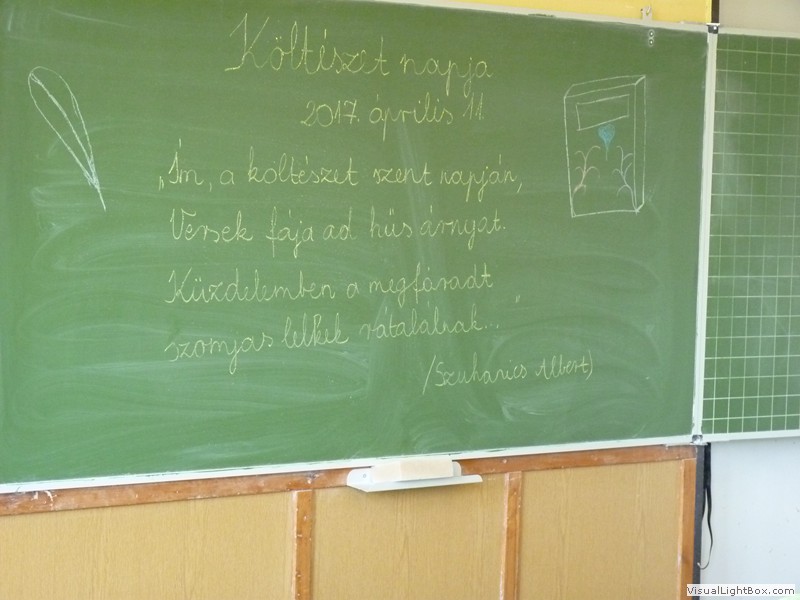 Költészet napja
2017. április 11.
„Ím, a költészet szent napján,
Versek fája ad hűs árnyat.
Küzdelemben a megfáradt
szomjas lelkek rátalálnak..."
/Szuhanics Albert)
VisualLightBox.com